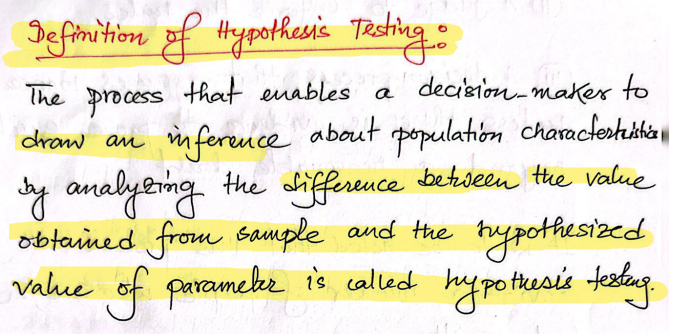 Definition of Hypothesis Testing:
The process that enables a decision-maker to
draw an inference about population characteristics
by analyzing the difference between the value
obtained from sample and the hypothesized
value of parameter is called hypothesis testing.